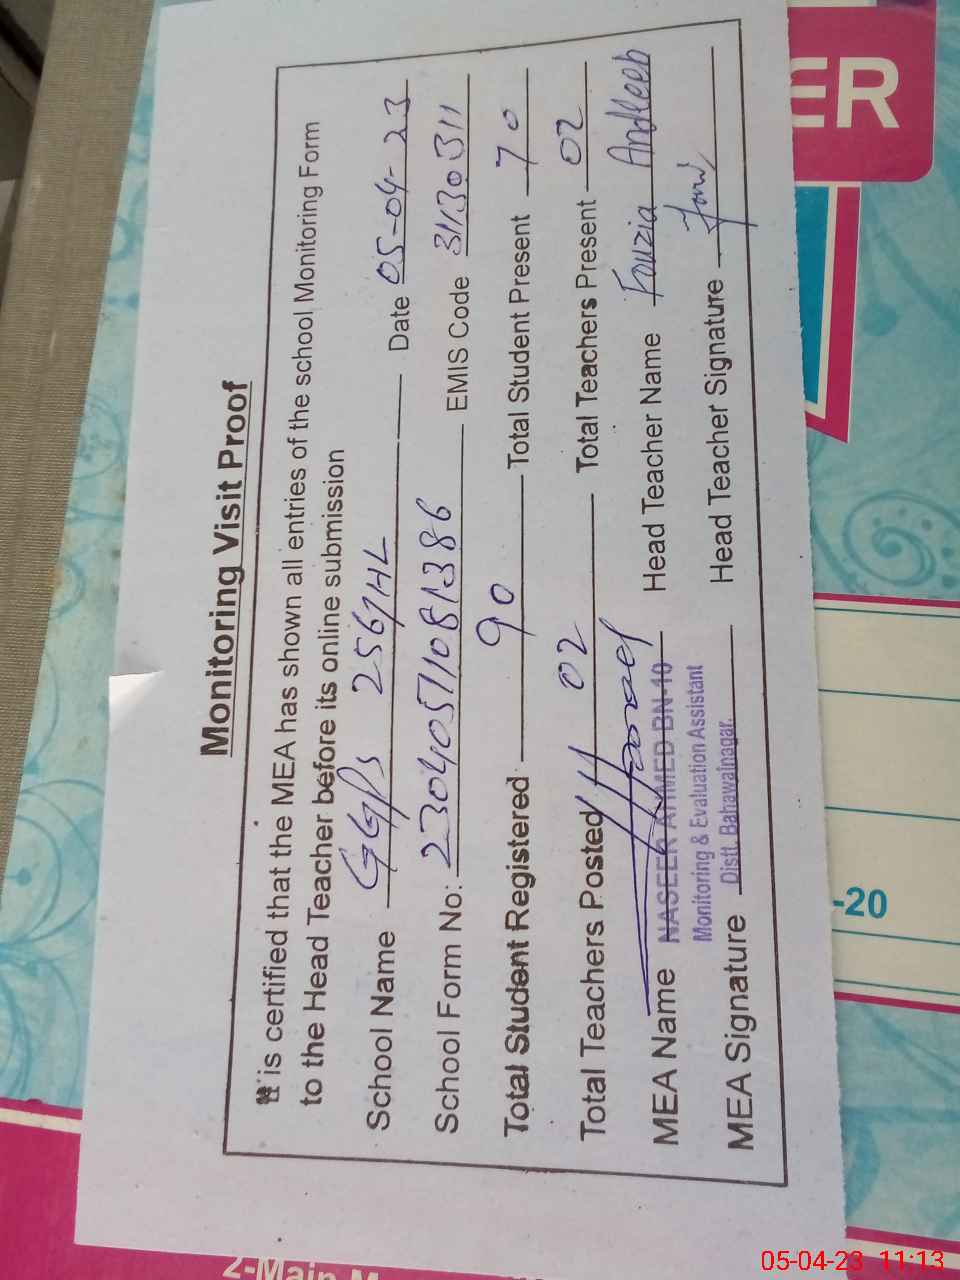 Monitoring Visit Proof
It is certified that the MEA has shown all entries of the school Monitoring Form
to the Head Teacher before its online submission
School Name GGPS 256/HL Date 05-04-23
School Form No: 23040571081386 EMIS Code 31130311
Total Student Registered 90 Total Student Present 70
Total Teachers Posted 02 Total Teachers Present 02
MEA Name NASEER AHMED BN-10 Head Teacher Name Fouzia Andleeb
Monitoring & Evaluation Assistant
MEA Signature Distt. Bahawalnagar. Head Teacher Signature
ER
-20
2-Main M
05-04-23 11:13